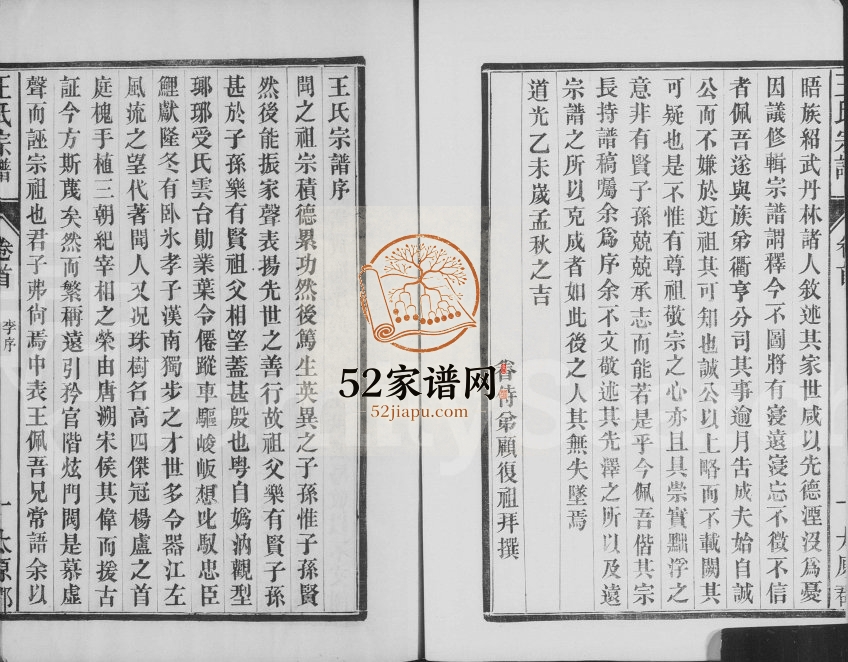 晤族紹武丹林諸人敘述其家世咸以先德湮沒為憂
因議修輯宗譜謂釋今不圖將有寖遠寖忘不徵不信
者佩吾遂與族弟衢亨分司其事逾月告成夫始自誠
公而不嫌於近祖其可知也誠公以上略而不載闕其
可疑也是不惟有尊祖敬宗之心亦且具崇實黜浮之
意非有賢子孫兢兢承志而能若是乎今佩吾偕其宗
長持譜稿囑余為序余不文敬述其先澤之所以及遠
宗譜之所以克成者如此後之人其無失墜焉
道光乙未歲孟秋之吉
侍弟顧復祖拜撰
王氏宗譜
卷首
太原郡
王氏宗譜序
聞之祖宗積德累功然後篤生英異之子孫惟子孫賢
然後能振家聲表揚先世之善行故祖父樂有賢子孫
甚於子孫樂有賢祖父相望蓋甚殷也粵自媯汭觀型
瑯琊受氏雲台勛業葉令僊蹤車驅峻岅想叱馭忠臣
鯉獻隆冬有臥氷孝子漢南獨步之才世多令器江左
風流之望代著聞人又况珠樹名高四傑冠楊盧之首
庭槐手植三朝紀宰相之榮由唐溯宋侯其偉而援古
証今方斯蔑矣然而繁稱遠引矜官階炫門閥是慕虛
聲而誣宗祖也君子弗尙焉中表王佩吾兄常語余以
王氏宗譜
卷首
李序
一
太原郡
52家谱网
52jiapu.com